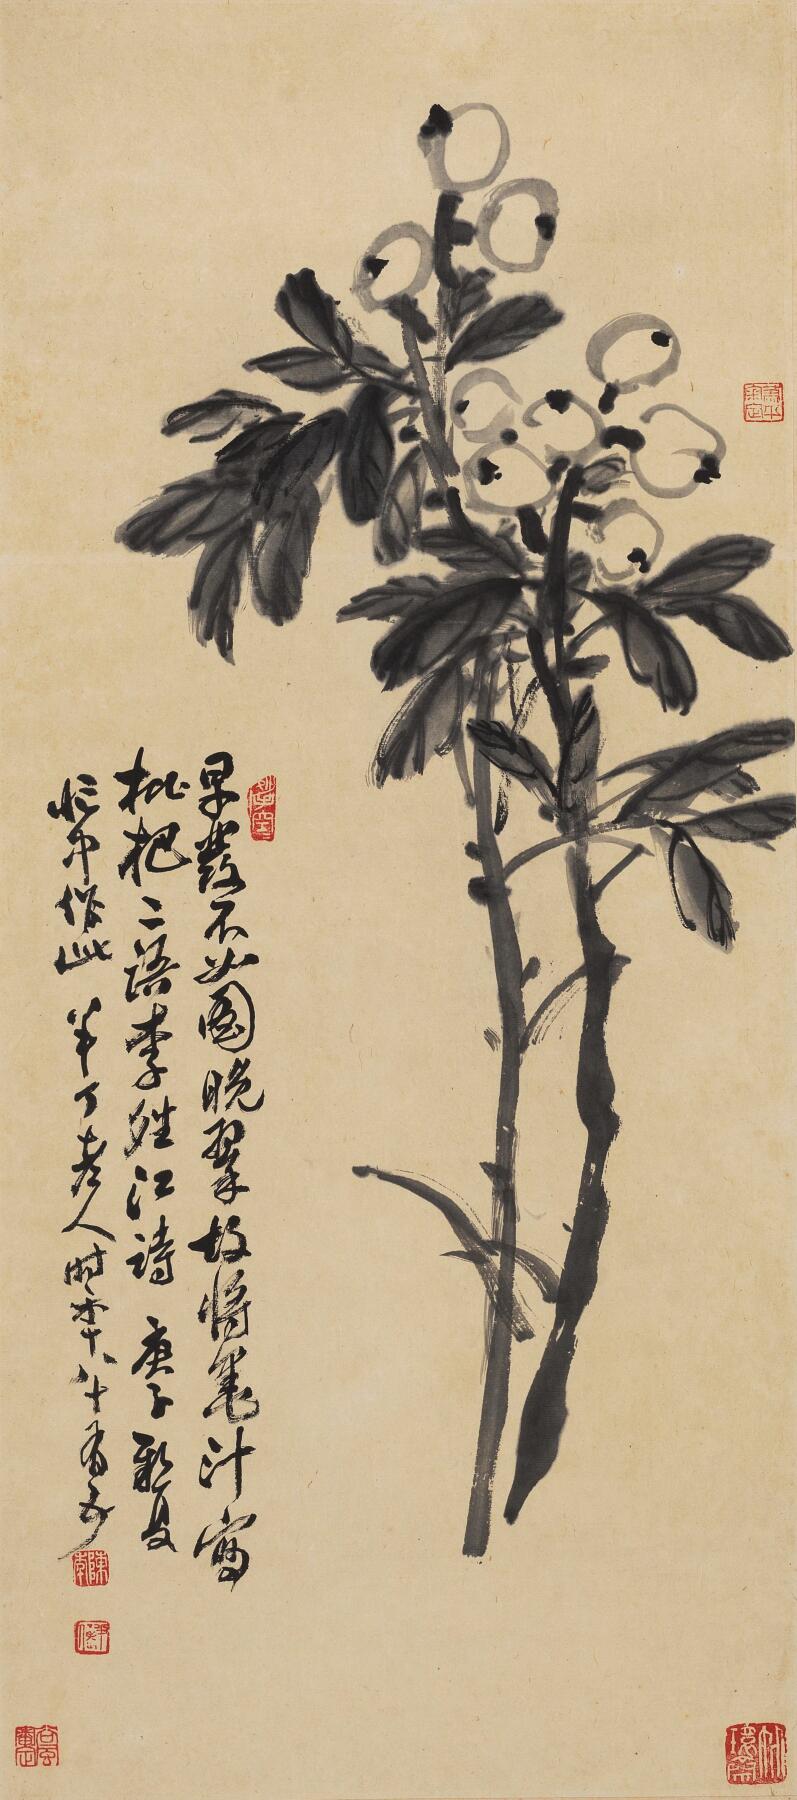 早發不必圖晚翠故將墨汁寫
枇杷二語李姓江詩庚子新夏
忙中作此半丁老人時年八十有五
陳年